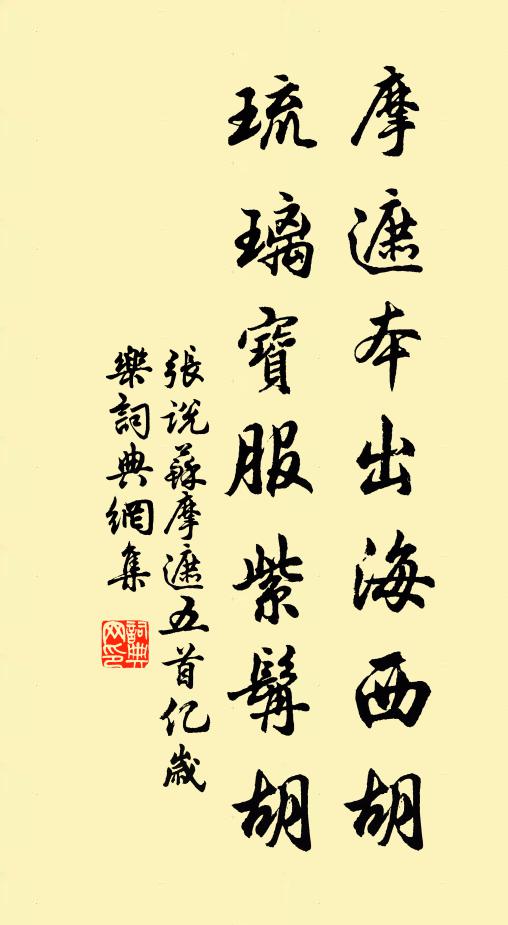 摩遮本出海西胡
琉璃寶服紫髯胡
張説蘇摩遮五首亿歲
樂詞典網集
詞典
网印